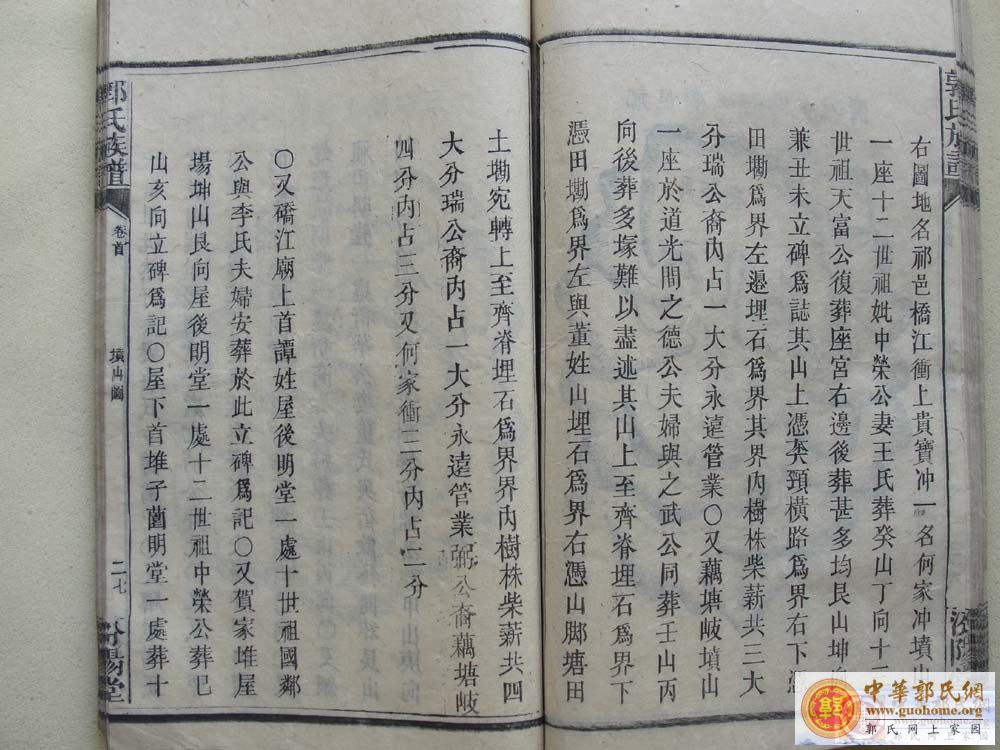 郭氏族譜
右圖地名祁邑橋江衝上貴寶冲一名何家冲墳山
一座十二世祖妣中榮公妻王氏葬癸山丁向十二
世祖天富公復葬座宮右邊後葬甚多均艮山坤
兼丑未立碑爲誌其山上憑頸橫路爲界右下憑
田墈爲界左邊埋石爲界其界内樹株柴薪共三大
分瑞公裔内占一大分永遠管業○又藕塘岐墳山
一座於道光間之德公夫婦與之武公同葬壬山丙
向後葬多塚難以盡述其山上至齊脊埋石爲界下
憑田墈爲界左與董姓山埋石爲界右憑山脚塘田
汾陽
土墈宛轉上至齊脊埋石爲界界内樹株柴薪共四
大分瑞公裔丙占一大分永遠管業弼公裔藕塘岐
四分内占三分又何家衝三分内占二分
○又礄江廟上首譚姓屋後明堂一處十世祖國鄰
公與李氏夫婦安葬於此立碑爲記○又賀家堆屋
場坤山艮向屋後明堂一處十二世祖中榮公葬巳
山亥向立碑爲記○屋下首堆子薗明堂一處葬十
郭氏族譜
卷首
墳山圖
二七
汾陽堂
中華郭氏網
www.guohome.org
郭氏网上家园